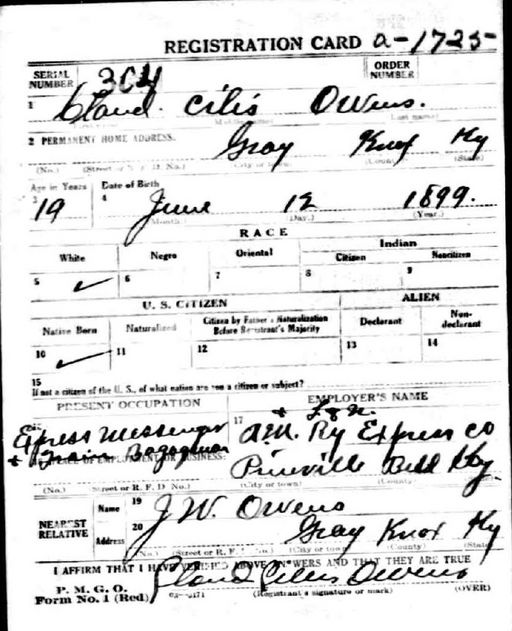 REGISTRATION CARD a-1725-
SERIAL NUMBER 304 ORDER NUMBER
1 Claud. Cilis Owens.
(Last name)
2 PERMANENT HOME ADDRESS. Gray Knox Ky
(No.) (Street or R. F. D. No.) (City or town) (County) (State)
Age in Years Date of Birth
3 19 4 June 12 1899.
(Month) (Day.) (Year.)
RACE
White Negro Oriental Indian
Citizen Noncitizen
5 ✓ 6 7 8 9
U. S. CITIZEN ALIEN
Native Born Naturalized Citizen by Father's Naturalization Before Registrant's Majority Declarant Non-declarant
10 ✓ 11 12 13 14
15
If not a citizen of the U. S., of what nation are you a citizen or subject?
PRESENT OCCUPATION EMPLOYER'S NAME
+ L & N.
Express Messenger 17 Am. Ry Express Co
+ Train Bagagman
PLACE OF EMPLOYMENT OR BUSINESS: Pineville Bell Ky.
(No.) Street or R. F. D. No.) (City or town) (County)
NEAREST RELATIVE
Name 19 J W. Owens
Address 20 Gray Knox Ky
(No.) (Street or R. F. D. No.) (City or town) (County) (State
I AFFIRM THAT I HAVE VERIFIED ABOVE ANSWERS AND THAT THEY ARE TRUE
P. M. G. O.
Form No. 1 (Red) Claud Cilis Owens
(Registrant's signature or mark) (OVER)